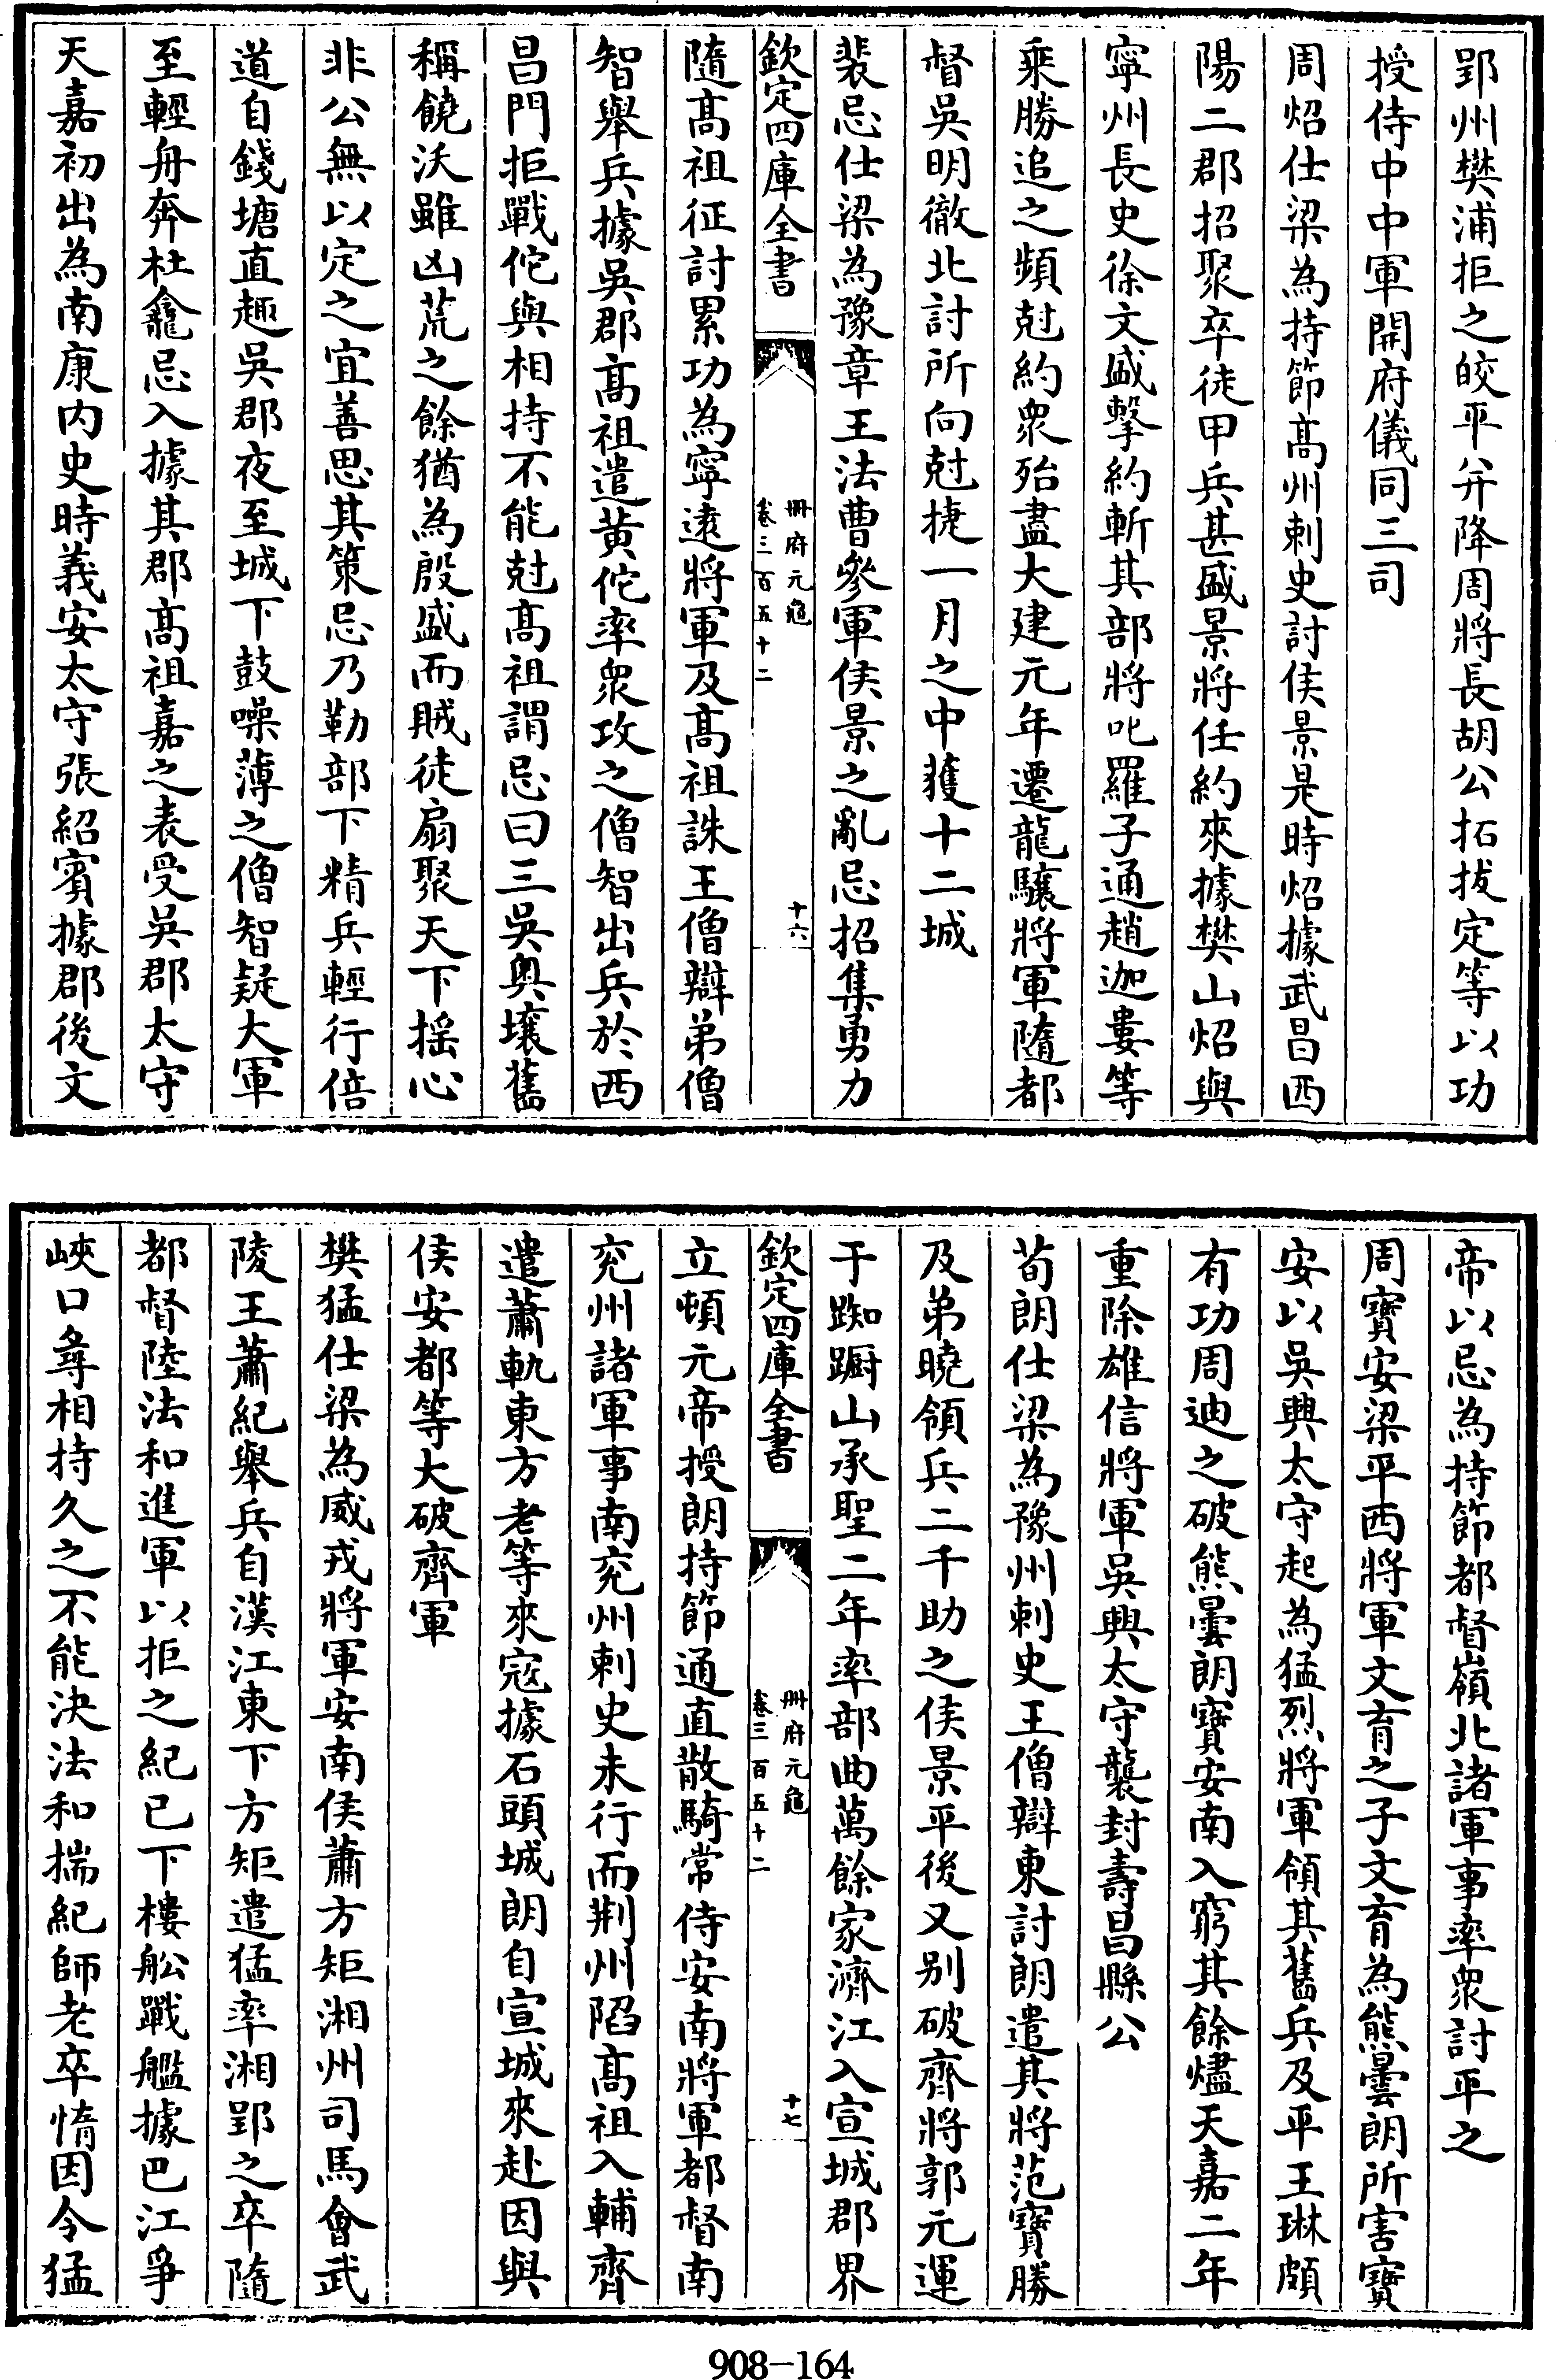 郢州樊浦拒之皎平并降周將長胡公拓拔定等以功
授侍中中軍開府儀同三司
周炤仕梁為持節髙州刺史討侯景是時炤據武昌西
陽二郡招聚卒徒甲兵甚盛景將任約來據樊山炤與
寧州長史徐文盛擊約斬其部將叱羅子通趙迦婁等
乘勝追之頻尅約衆殆盡大建元年遷龍驤將軍隨都
督吳明徹北討所向尅捷一月之中獲十二城
裴忌仕梁為豫章王法曹參軍侯景之亂忌招集勇力
欽定四庫全書
冊府元龜
卷三百五十二
十六
隨髙祖征討累功為寧逺將軍及髙祖誅王僧辯弟僧
智舉兵據吳郡髙祖遣黄佗率衆攻之僧智出兵於西
昌門拒戰佗與相持不能尅髙祖謂忌曰三吳奥壤舊
稱饒沃雖凶荒之餘猶為殷盛而賊徒扇聚天下揺心
非公無以定之宜善思其策忌乃勒部下精兵輕行倍
道自錢塘直趣吳郡夜至城下鼓噪薄之僧智疑大軍
至輕舟奔杜龕忌入據其郡髙祖嘉之表受吳郡太守
天嘉初出為南康内史時義安太守張紹賓據郡後文
帝以忌為持節都督嶺北諸軍事率衆討平之
周寳安梁平西將軍文育之子文育為熊曇朗所害寳
安以吳興太守起為猛烈將軍領其舊兵及平王琳頗
有功周迪之破熊曇朗寳安南入窮其餘燼天嘉二年
重除雄信將軍吳興太守襲封壽昌縣公
荀朗仕梁為豫州刺史王僧辯東討朗遣其將范寳勝
及弟曉領兵二千助之侯景平後又别破齊將郭元運
于踟蹰山承聖二年率部曲萬餘家濟江入宣城郡界
欽定四庫全書
冊府元龜
卷三百五十二
十七
立頓元帝授朗持節通直散騎常侍安南將軍都督南
兖州諸軍事南兖州刺史未行而荆州陷髙祖入輔齊
遣蕭軌東方老等來寇據石頭城朗自宣城來赴因與
侯安都等大破齊軍
樊猛仕梁為威戎將軍安南侯蕭方矩湘州司馬會武
陵王蕭紀舉兵自漢江東下方矩遣猛率湘郢之卒隨
都督陸法和進軍以拒之紀已下樓舩戰艦據巴江爭
峽口㝷相持久之不能決法和揣紀師老卒惰因令猛
908-164